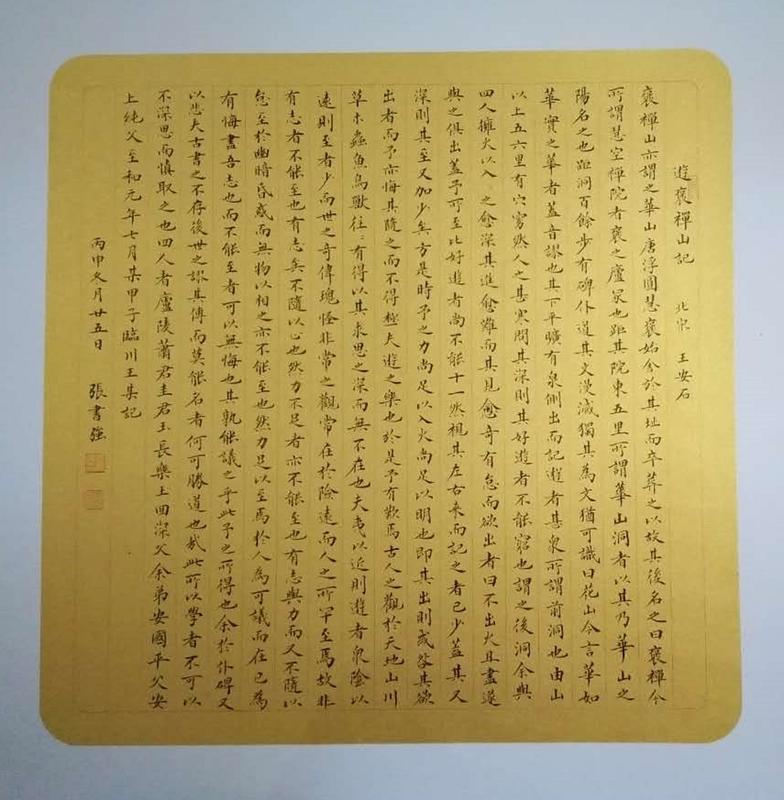 遊褒禪山記 北宋 王安石
褒禪山亦謂之華山唐浮圖慧褒始舍於其址而卒葬之以故其後名之曰褒禪今
所謂慧空禪院者褒之廬冢也距其院東五里所謂華山洞者以其乃華山之
陽名之也距洞百餘步有碑仆道其文漫滅獨其為文猶可識曰花山今言華如
華實之華者蓋音謬也其下平曠有泉側出而記遊者甚衆所謂前洞也由山
以上五六里有穴窈然入之甚寒問其深則其好遊者不能窮也謂之後洞余與
四人擁火以入 之愈深其進愈難而其見愈奇有怠而欲出者曰不出火且盡遂
與之俱出蓋予所至比好遊者尚不能十一然視其左右來而記之者已少蓋其又
深則其至又加少矣方是時予之力尚足以入火尚足以明也即其出則或咎其欲
出者而予亦悔其隨之而不得極夫遊之樂也於是予有歎焉古人之觀於天地山川
草木蟲魚鳥獸往〻有得以其求思之深而無不在也夫夷以近則遊者衆險以
遠則至者少而世之奇偉瑰怪非常之觀常在於險遠而人之所罕至焉故非
有志者不能至也有志矣不隨以止也然力不足者亦不能至也有志與力而又不隨以
怠至於幽暗昏惑而無物以相之亦不能至也然力足以至焉於人為可譏而在己為
有悔盡吾志也而不能至者可以無悔也其孰能譏之乎此予之所得也余於仆碑又
以悲夫古書之不存後世之謬其傳而莫能名者何可勝道也哉此所以學者不可以
不深思而慎取之也四人者廬陵蕭君圭君玉長樂王回深父余弟安國平父安
上純父至和元年七月某甲子臨川王某記
丙申 月廿五日 張書強